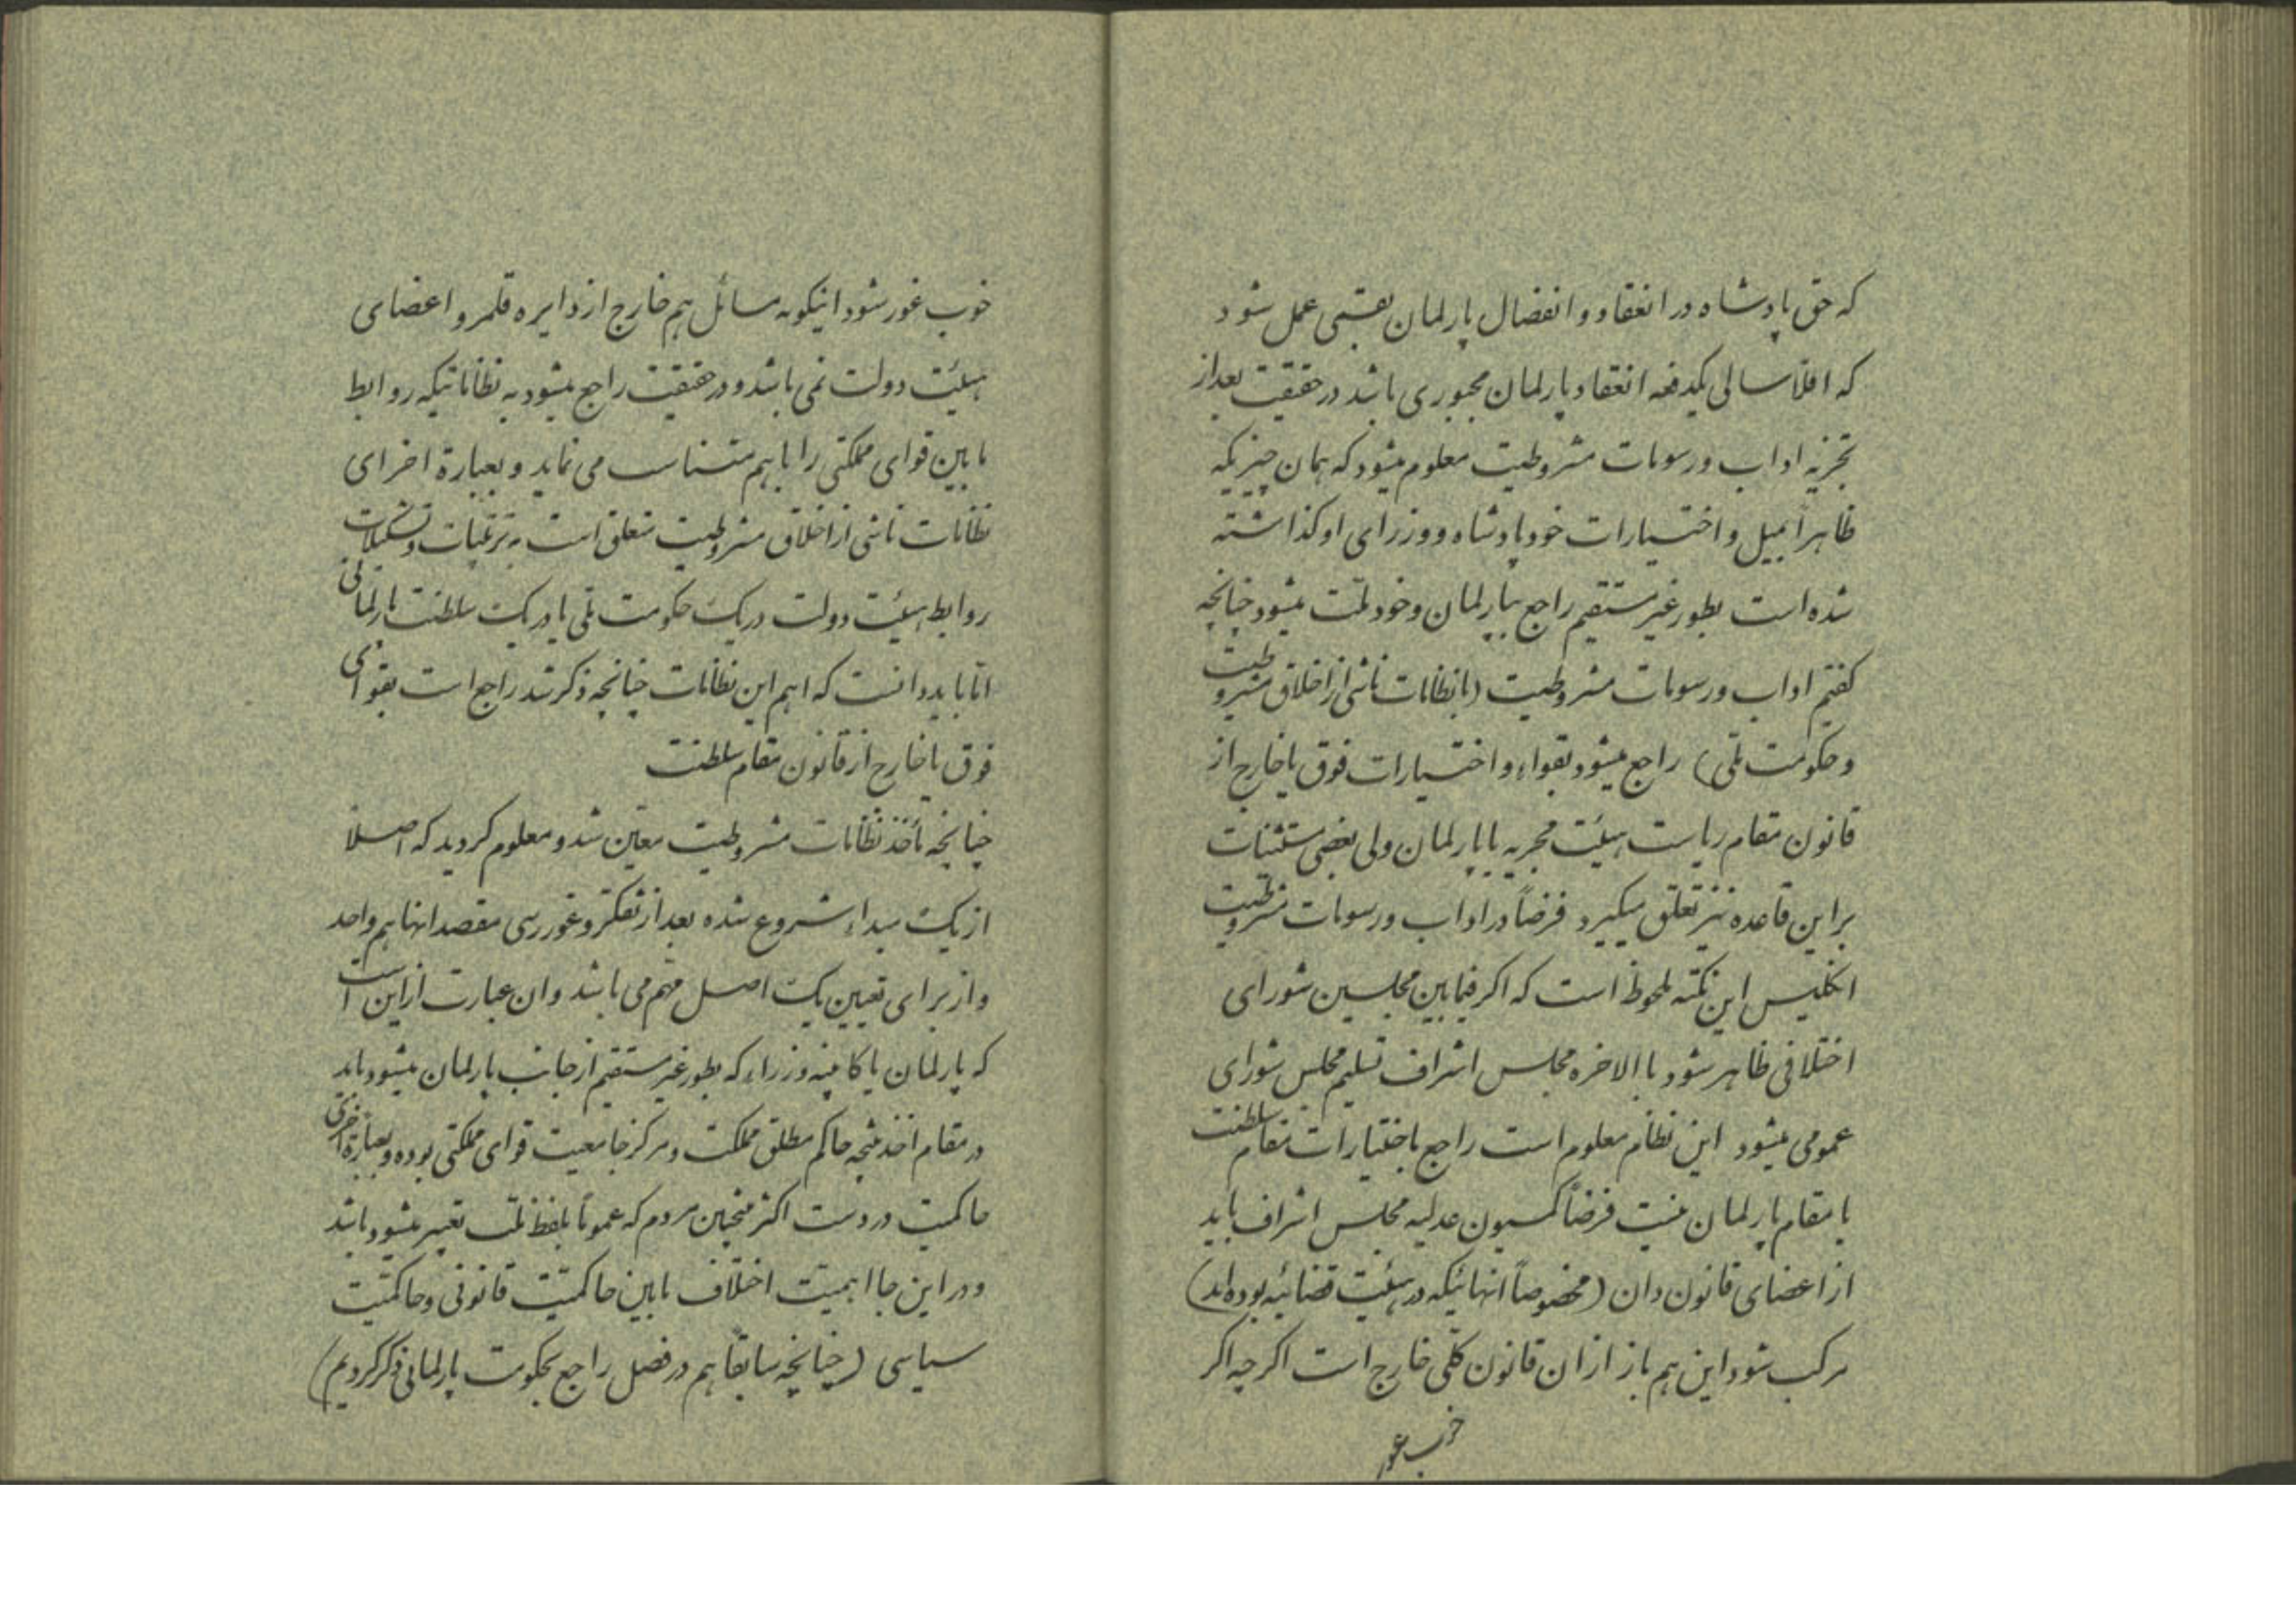 که حق پادشاه در انعقاد و انفصال پارلمان بقسمی عمل شود
که اقلاً سالی یکدفعه انعقاد پارلمان مجبوری باشد در حقیقت بعد از
تجزیه اداب و رسومات مشروطیت معلوم میشود که همان چیزیکه
ظاهراً بمیل و اختیارات خود پادشاه و وزرای او گذاشته
شده است بطور غیر مستقیم راجع بپارلمان و خود ملّت میشود چنانچه
کفتم اداب و رسومات مشروطیت (یا نظامات ناشی از اخلاق مشروطیت
و حکومت ملّی) راجع میشود بقواء و اختیارات فوق یا خارج از
قانون مقام ریاست هیئت مجریه یا پارلمان ولی بعضی مستثنیات
بر این قاعده نیز تعلق میگیرد فرضاً در اداب و رسومات مشروطیت
انگلیس این نکته ملحوظ است که اکر فیمابین مجلسین شورای
اختلافی ظاهر شود بالاخره مجلس اشراف تسلیم مجلس شورای
عمومی میشود این نظام معلوم است راجع باختیارات مقام سلطنت
یا مقام پارلمان نیست فرضاً کمسیون عدلیه مجلس اشراف باید
از اعضای قانون دان (مخصوصاً انهائیکه در هیئت قضائیه بوده‌اند)
مرکب شود این هم باز از ان قانون کلّی خارج است اکر چه اکر
خوب غور
خوب غور شود اینکونه مسائل هم خارج از دایره قلمرو اعضای
هیئت دولت نمی باشد و در حقیقت راجع میشود به نظاماتیکه روابط
مابین قوای مملکتی را با هم متناسب می نماید و بعبارة اخرای
نظامات ناشی از اخلاق مشروطیت متعلق است به ترتیبات و تشکیلات
روابط هیئت دولت در یک حکومت ملّی یا در یک سلطنت پارلمانی
امّا باید دانست که اهم این نظامات چنانچه ذکر شد راجع است بقوای
فوق یا خارج از قانون مقام سلطنت
چنانچه مأخذ نظامات مشروطیت معیّن شد و معلوم کردید که اصلاً
از یک مبداء شروع شده بعد از تفکر و غوررسی مقصد انها هم واحد
و از برای تعیین یک اصل مهّم می باشد و ان عبارت از این است
که پارلمان یا کابینه وزراء که بطور غیر مستقیم از جانب پارلمان میشود باید
در مقام اخذ نتیجه حاکم مطلق مملکت و مرکز جامعیت قوای مملکتی بوده و بعبارة اخری
حاکمیت در دست اکثر منتخبین مردم که عموماً بلفظ ملّت تعبیر میشود باشد
و در این جا اهمیّت اختلاف مابین حاکمیّت قانونی و حاکمیّت
سیاسی (چنانچه سابقاً هم در فصل راجع بحکومت پارلمانی ذکر کردیم)